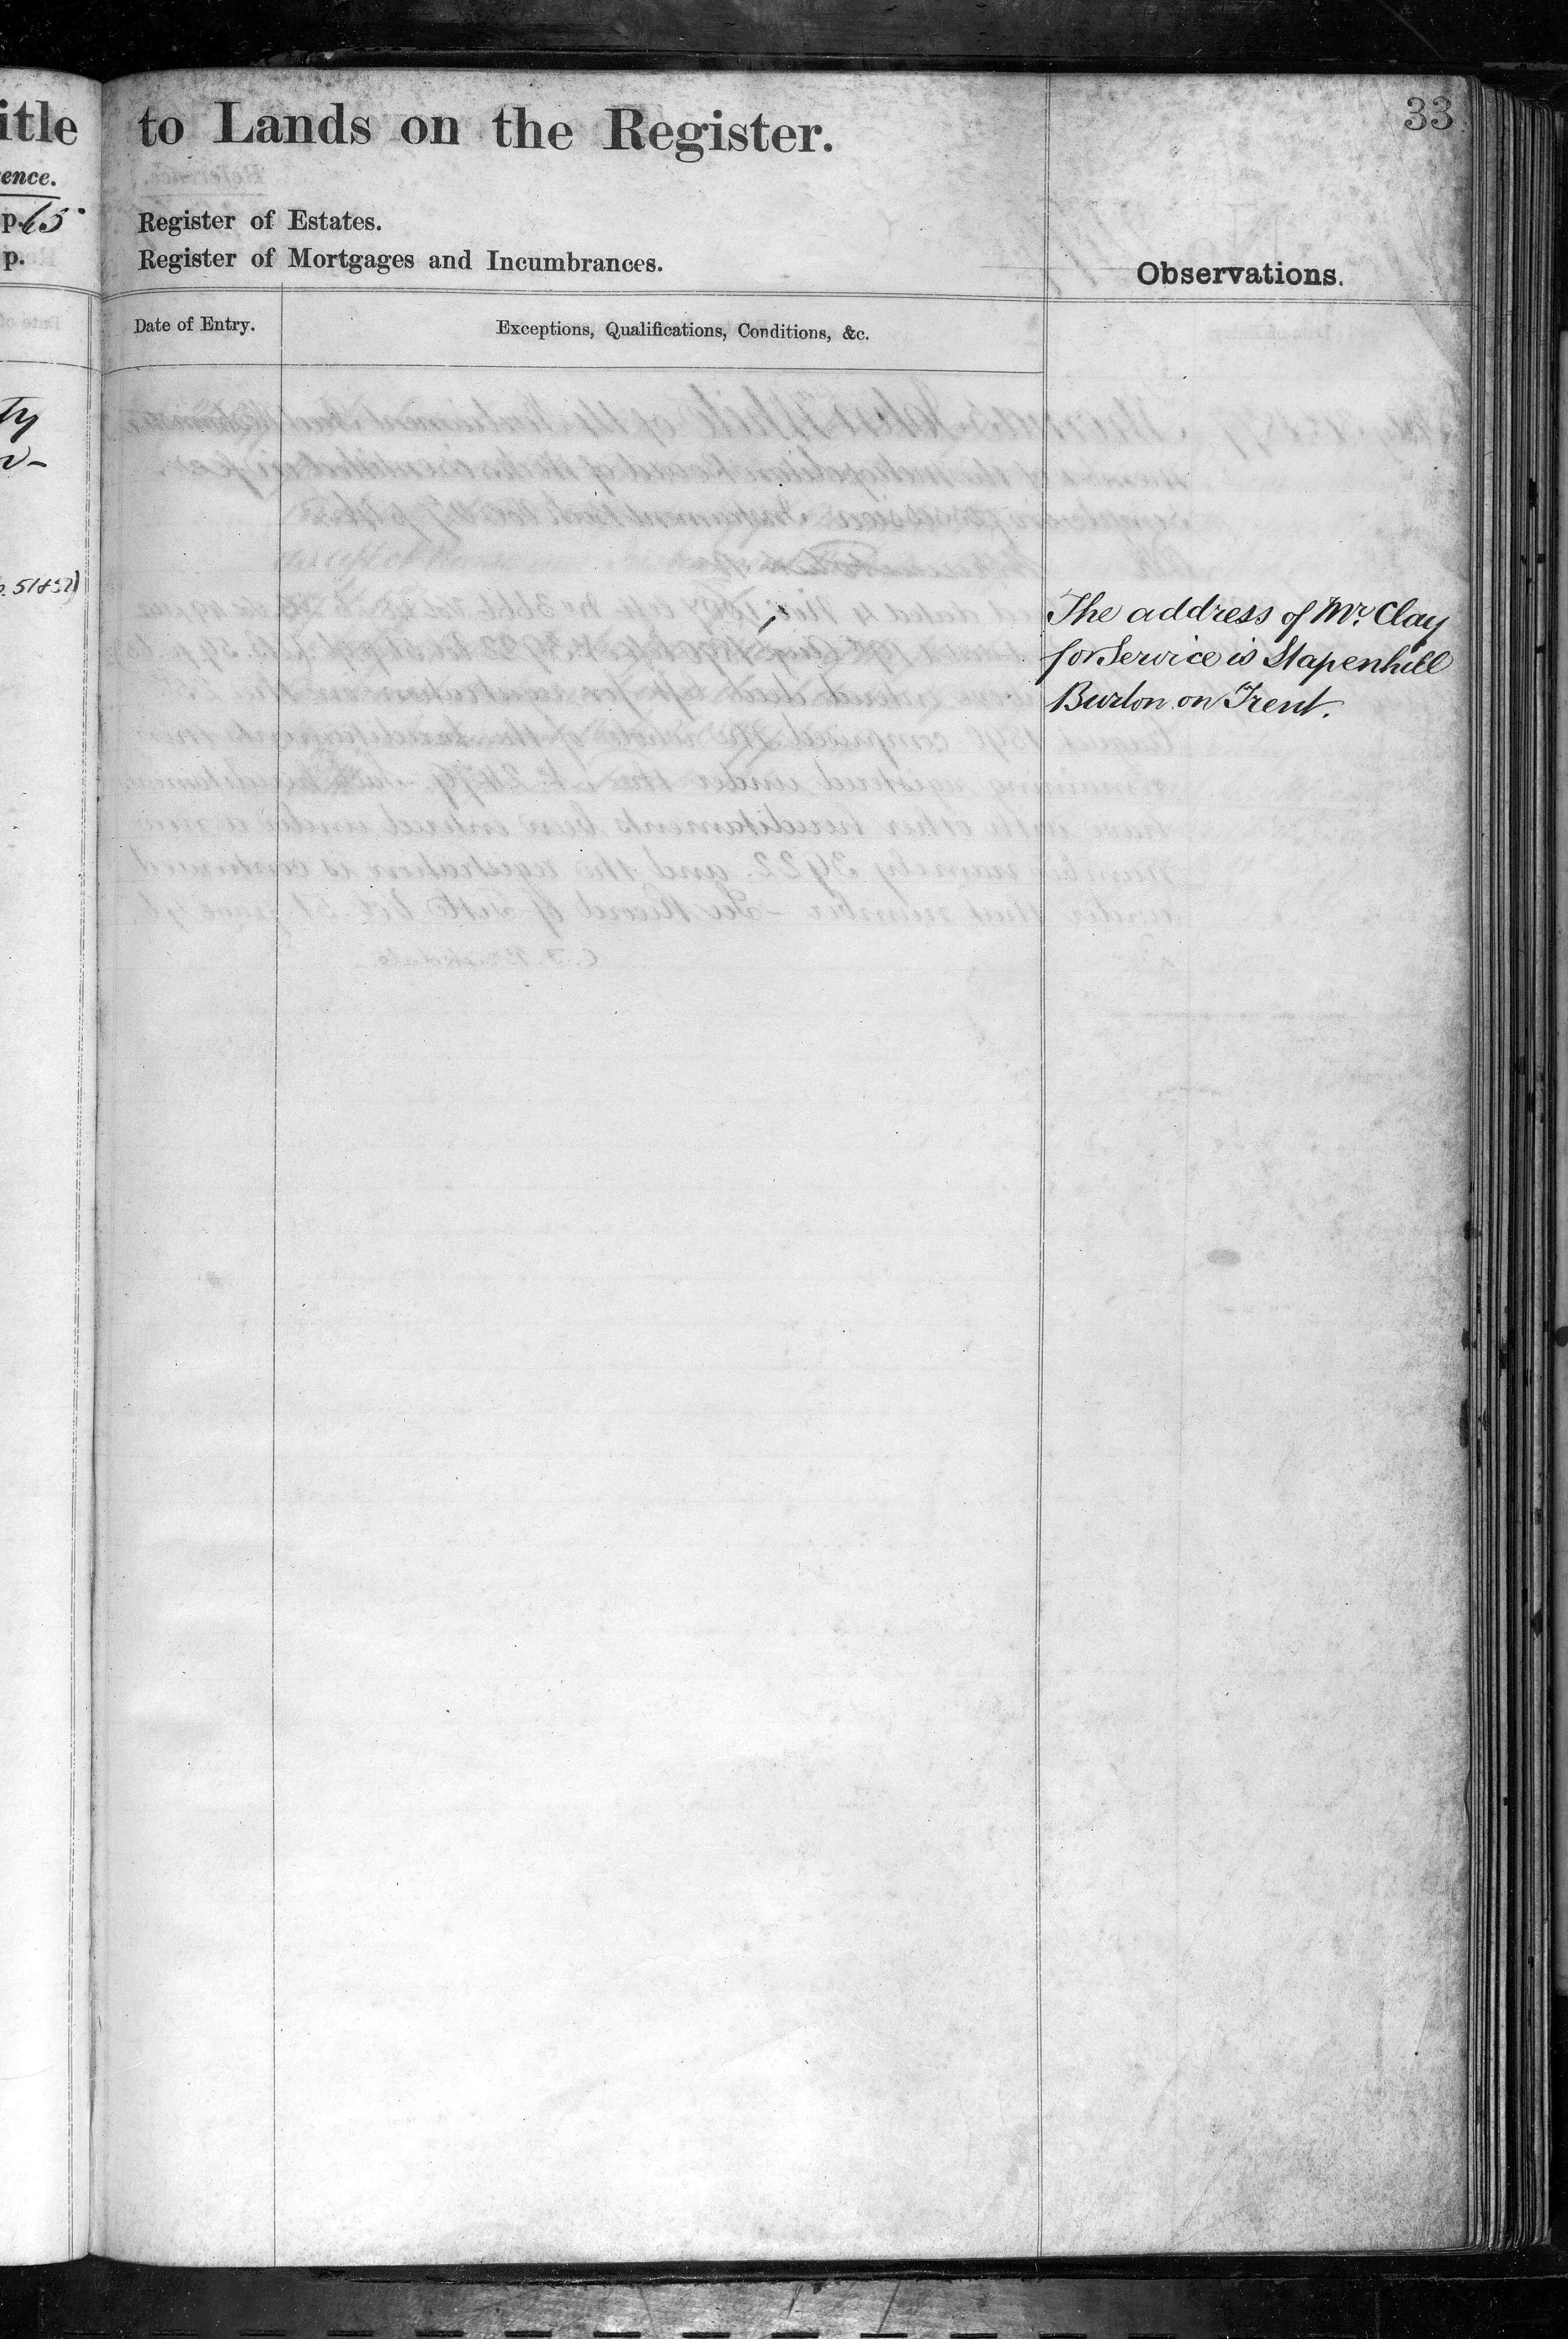 33
itle to Lands on the Register.
ence.
p. 65 Register of Estates.
p. Register of Mortgages and Incumbrances.
Observations.
Date of Entry. Exceptions, Qualifications, Conditions, &c.
ty
The address of Mr. Clay
for Service is Stapenhill
Burton on Trent.